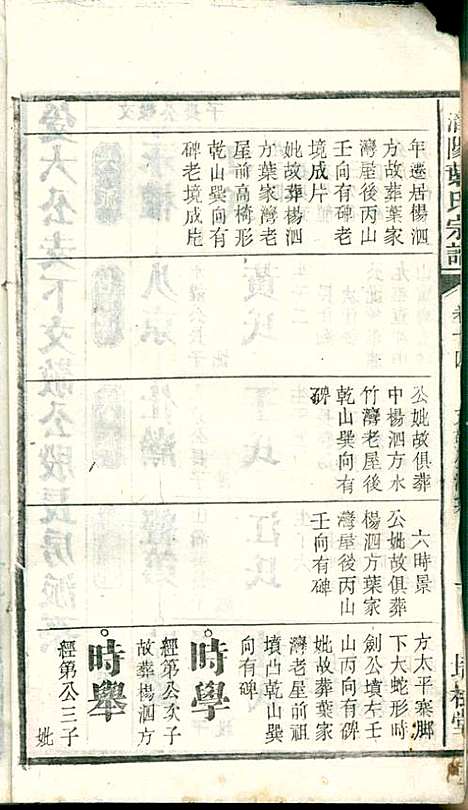 年遷居楊泗
方故葬葉家
灣屋後丙山
壬向有碑老
境成片
妣故葬楊泗
方葉家灣老
屋前高椅形
乾山巽向有
碑老境成片
公妣故俱葬
中楊泗方水
竹灣老屋後
乾山巽向有
碑
六時景
公妣故俱葬
楊泗方葉家
灣屋後丙山
壬向有碑
方太平寨腳
下大蛇形時
劍公墳左壬
山丙向有碑
妣故葬葉家
灣老屋前祖
墳凸乾山巽
向有碑
時學
經第公次子
故葬楊泗方
時舉
經第公三子
妣
葉氏宗譜